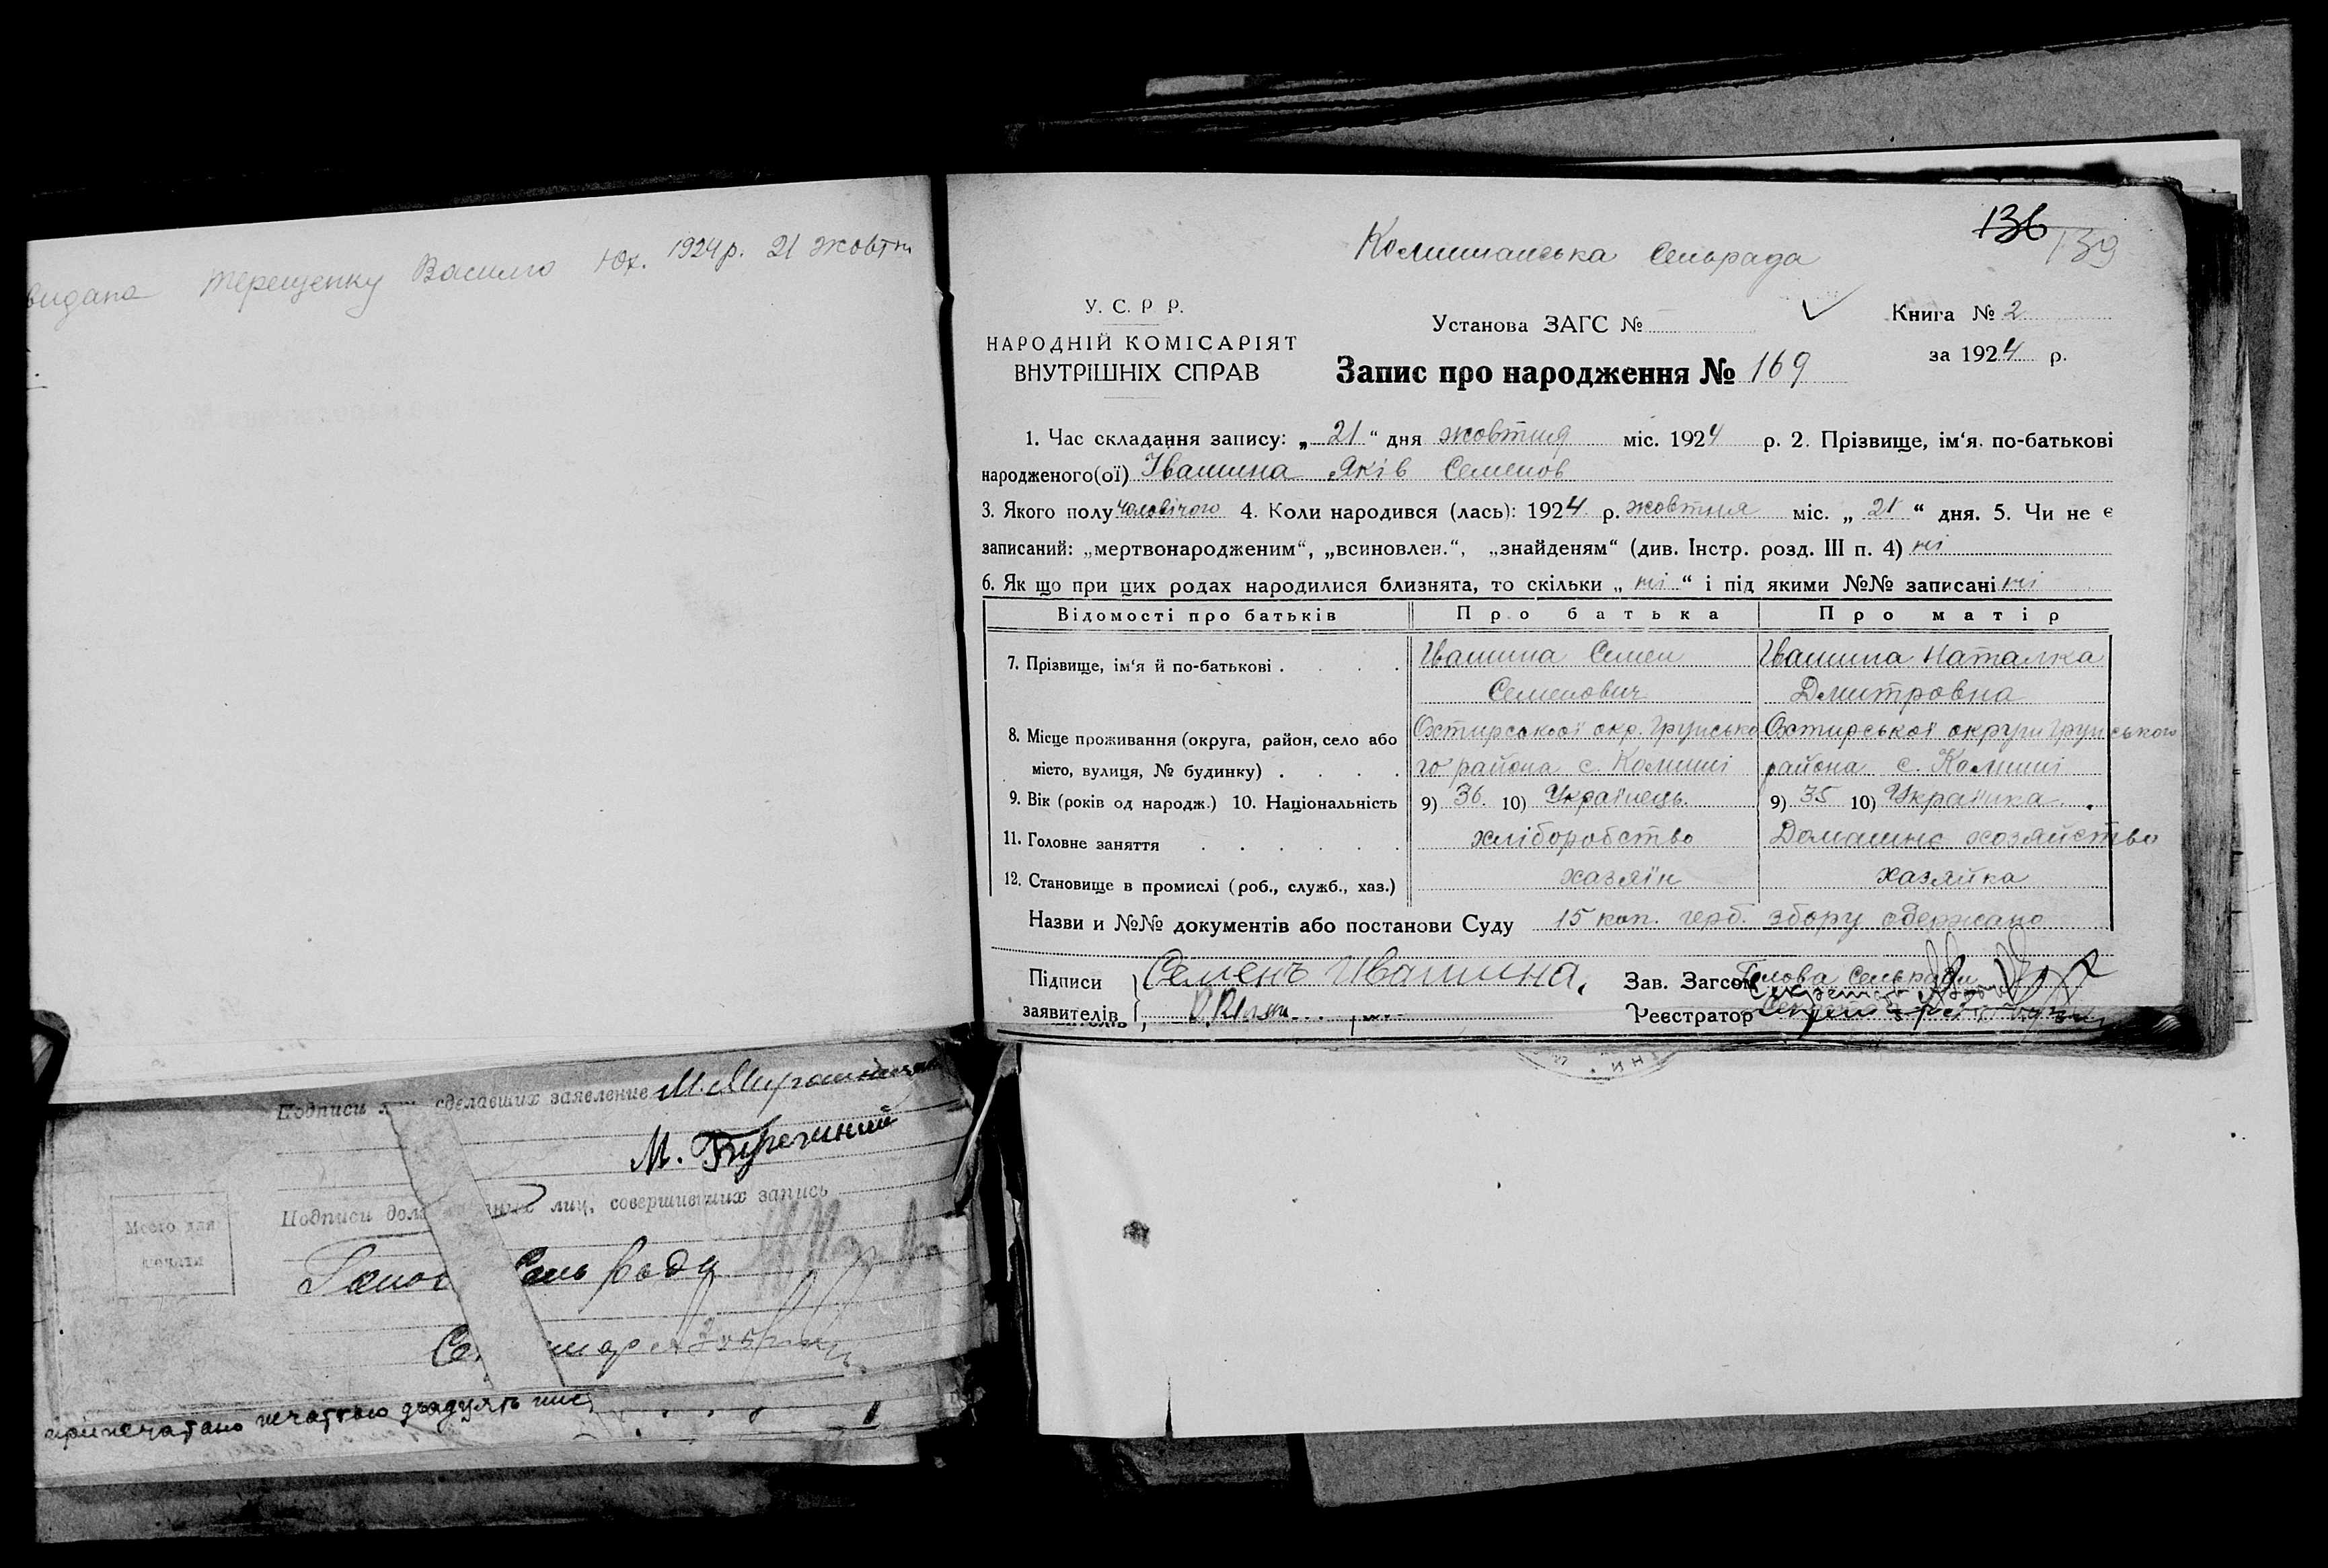 видана Терещенку Василю Юх. 1924 р. 21 жовтн
136 139
Колишанська Сельрада
У. С. Р Р.
НАРОДНІЙ КОМІСАРІЯТ
ВНУТРІШНІХ СПРАВ
Установа ЗАГС №
Книга № 2
за 1924 р.
Запис про народження № 169
1. Час складання запису: „ 21 “ дня жовтня міс. 1924 р. 2. Прізвище, ім‘я. по-батькові
народженого(ої) Івашина Яків Семенов
3. Якого полу чоловічого 4. Коли народився (лась): 1924 р. жовтня міс. „ 21 “ дня. 5. Чи не є
записаний: „мертвонародженим“, „всиновлен.“, „знайденям“ (див. Інстр. розд. III п. 4) ні
6. Як що при цих родах народилися близнята, то скільки „ ні “ і під якими №№ записані ні
Відомості про батьків Про батька Про матір
7. Прізвище, ім‘я й по-батькові . . . . Ивашина Семен Ивашина Наталка
Семенович Дмитровна
8. Місце проживання (округа, район, село або Охтирської окр. Грунсько Охтирської округи Грунського
місто, вулиця, № будинку) . . . . го района с. Колиші района с. Колиші
9. Вік (років од народж.) 10. Національність 9) 36. 10) Українець. 9) 35 10) Українка.
11. Головне заняття . . . . . . хліборобство Домашнє хозяйство
12. Становище в промислі (роб., служб., хаз.) хазяїн хазяйка
Назви и №№ документів або постанови Суду 15 коп. герб. збору одержано
Підписи Семенъ Ивашина. Зав. Загсом Голова Сельради
заявителів Реєстратор Секретар
Подписи сделавших заявление М. Мирошниченко
М. Бережний
Подписи лиц, совершивших запись
Место для
печати
Сель Рады
припечатано печаткою